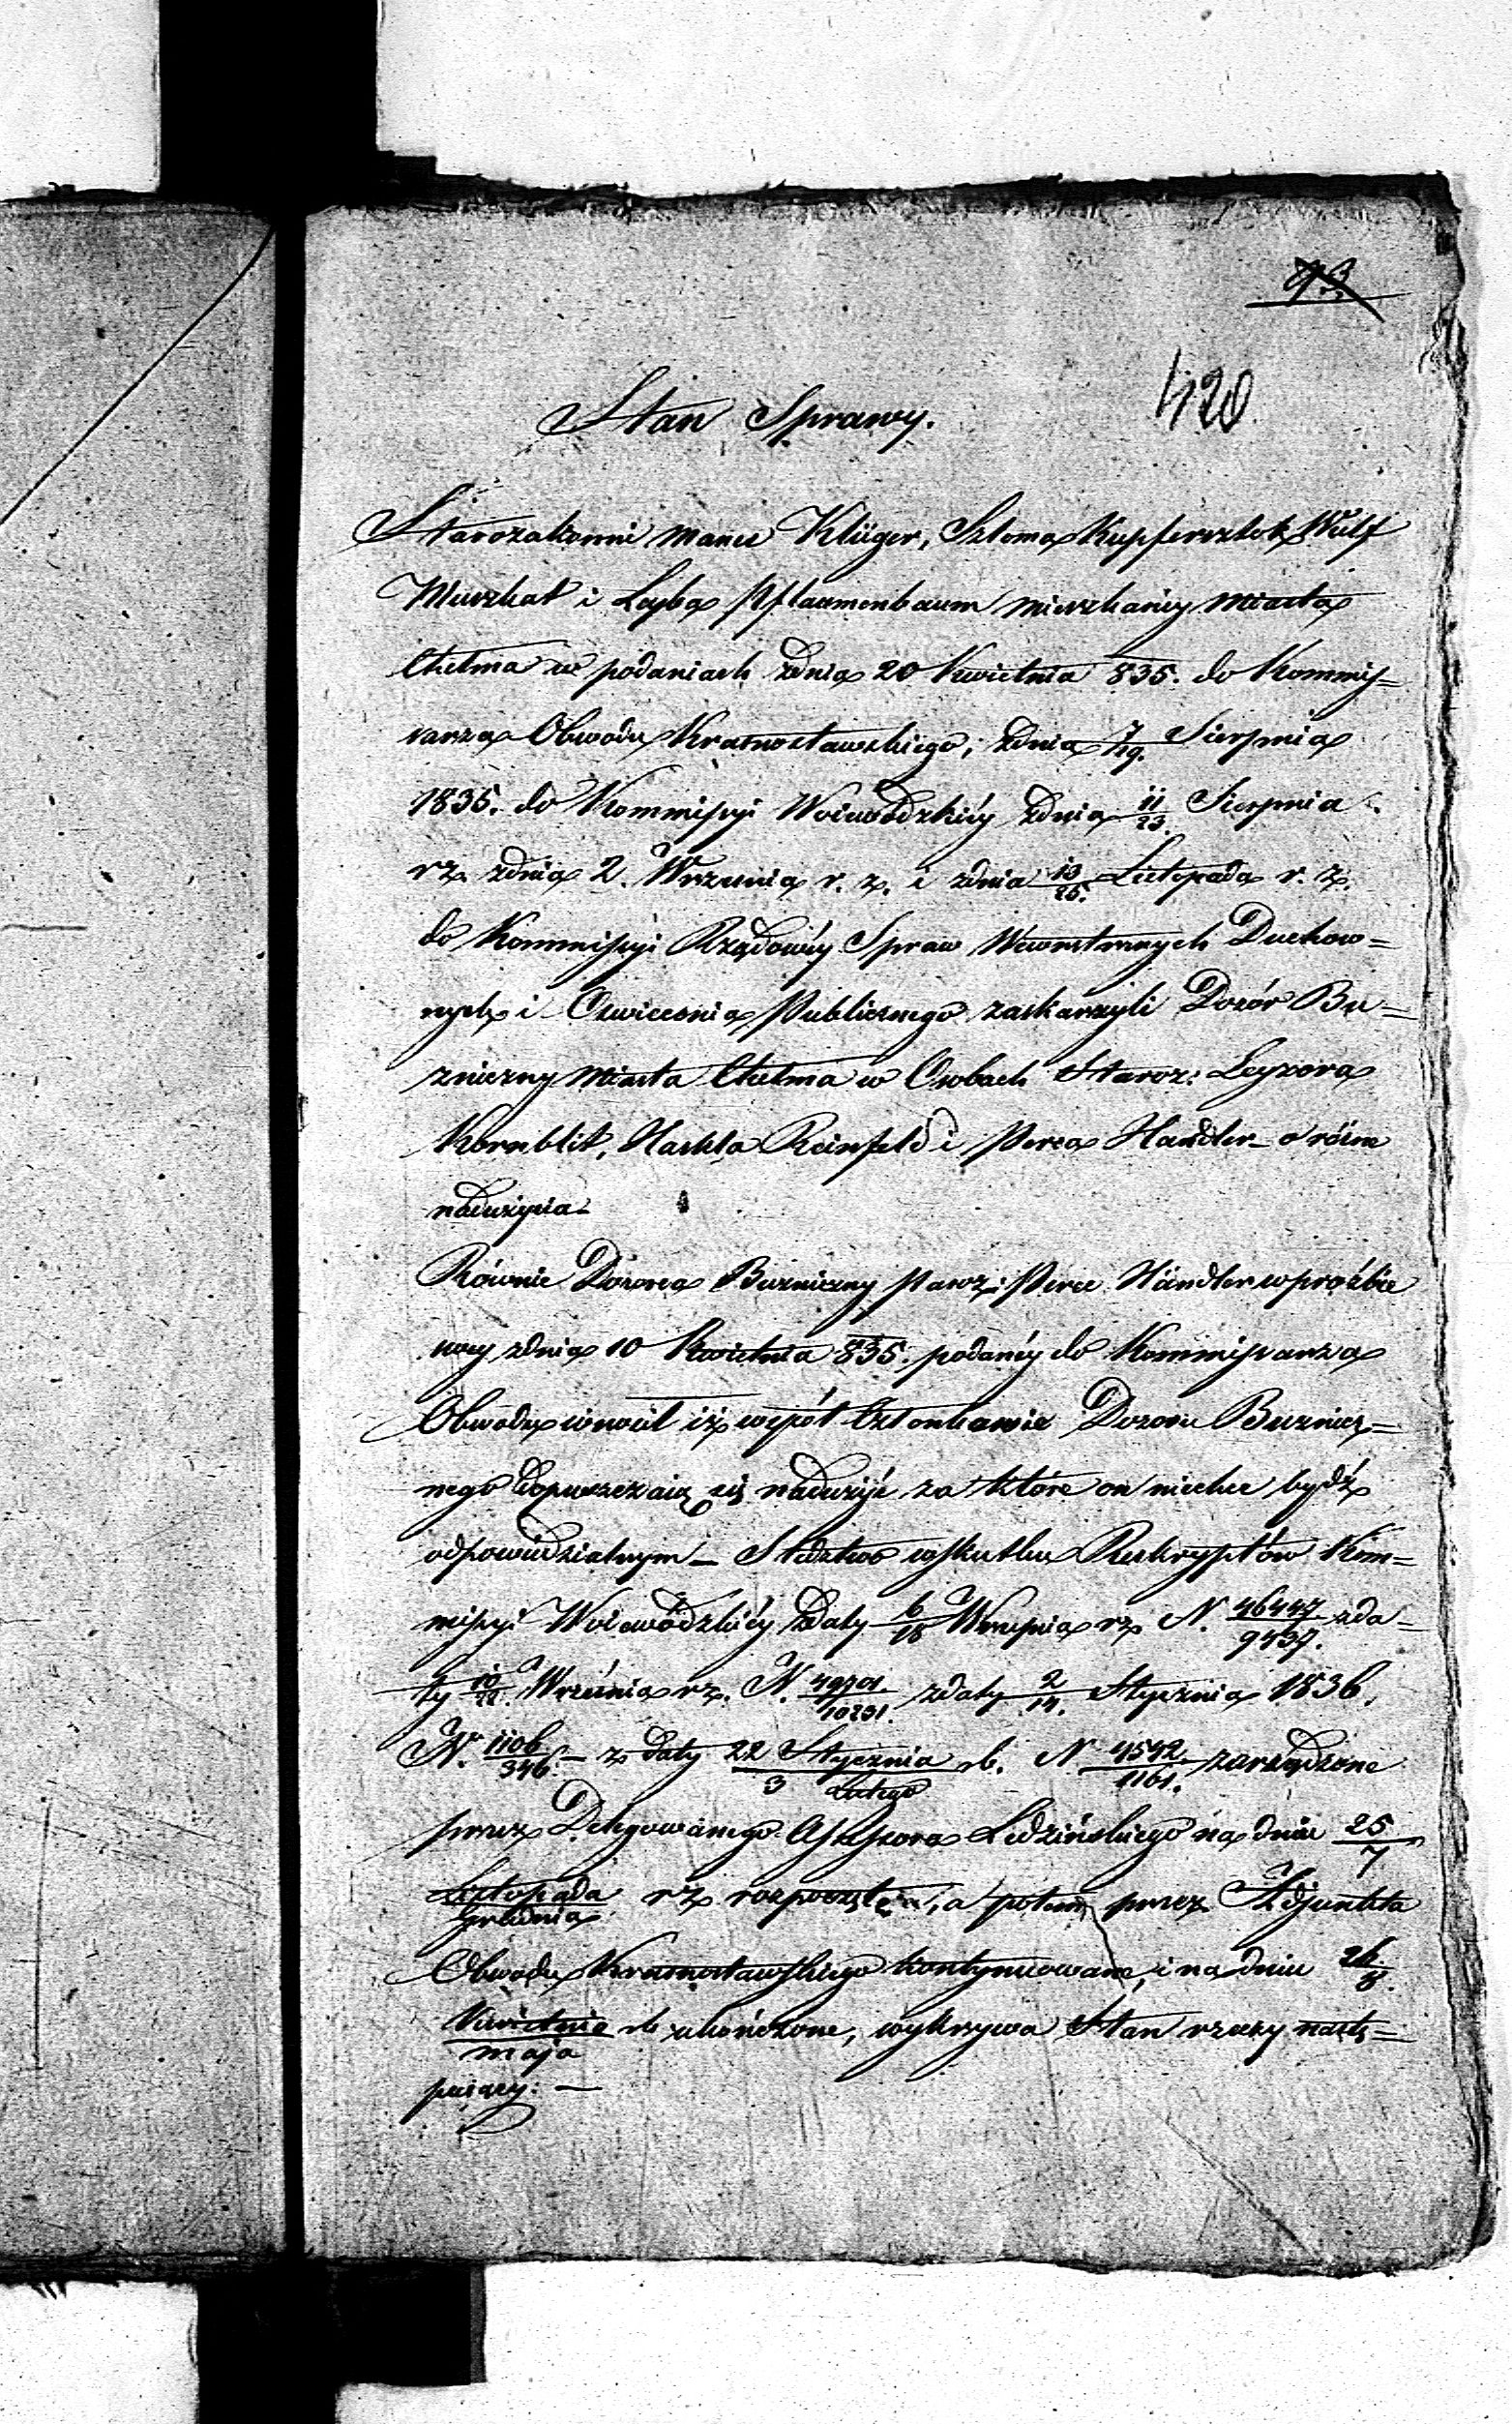 93
420
Stan Sprawy.
Starozakonni Manes Klüger, Szloma Kupfersztok, Wulf
Muszkat i Leyba Pflaumenbaum mieszkańcy Miasta
Chełma w podaniach zdnia 20 Kwietnia 835. do Kommis=
sarza Obwodu Krasnostawskiego; zdnia 7/19. Sierpnia
1835. do Kommissyi Woiewodzkiéy zdnia 11/23. Sierpnia
rz. zdnia 2. Września r. z. i zdnia 13/25. Listopada r. z.
do Kommissyi Rządowéy Spraw Wewnętrznych Duchow=
nych i Oswiecenia Publicznego zaskarzyli Dozór Bu=
zniczny Miasta Chełma w Osobach Staroz: Leyzora
Kornblit, Haskla Reinfeld i Perca Handler – o różne
nadużycia –
Równie Dozorca Buzniczny Staroz: Perec Händler w prozbie
swey zdnia 10 Kwietnia 835. podanéy do Kommissarza
Obwodu wnosił iż współ Członkowie Dozoru Buznicz=
nego dopuszczaią się nadużyć za które on niechce bydź
odpowiedzialnym – Śledztwo wskutku Reskryptów Kom=
missyi Woiewódzkiéy zdaty 6/18 Września rz N. 46447/9437. zda=
ty 10/22. Września rz. N. 49701./10231. zdaty 2/14. Stycznia 1836.
N. 1106/346. – z daty 22 Stycznia/3 Lutego rb. N 4542/1161. zarządzone
przez Delegowanego Assessora Ledzińskiego na dniu 25/7
Listopada/Grudnia rz rozpoczęte, a potem przez Adjunkta
Obwodu Krasnostawskiego kontynuowane, i na dniu 26/8.
Kwietnia/Maja rb ukończone, wykrywa Stan rzeczy nastę=
puiący: –